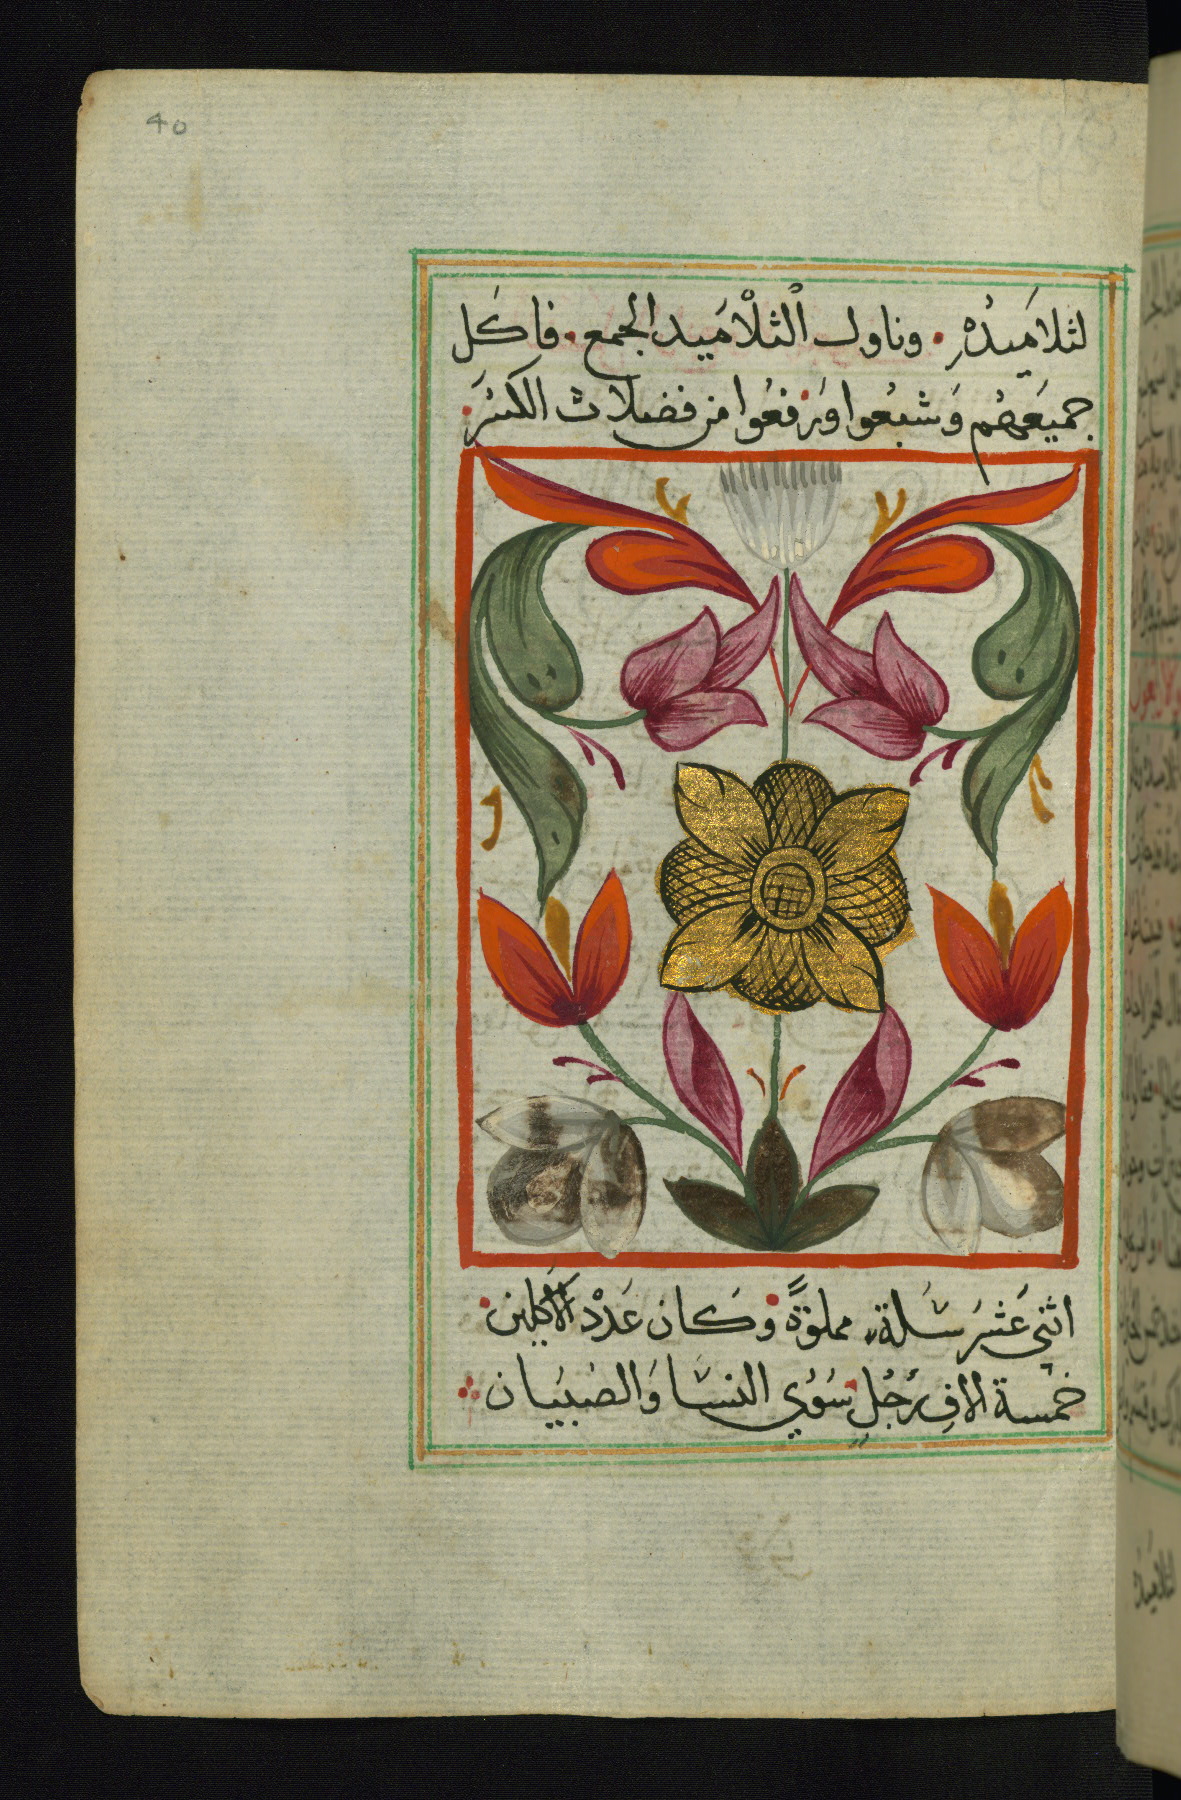 40
لتلاميدُهِ. وناول ٱلتلْاَميد الجمع. فاكَل
جميَعهُم وَشبعُوا وَرفعُوا من فضلات الكسَر
اثني عَشَر سَلة مملوَةً وَكان عَدَدْ الاَكلين
خمسة الاف رَجُلِ سُوُي النسَا وَالصَبيَان